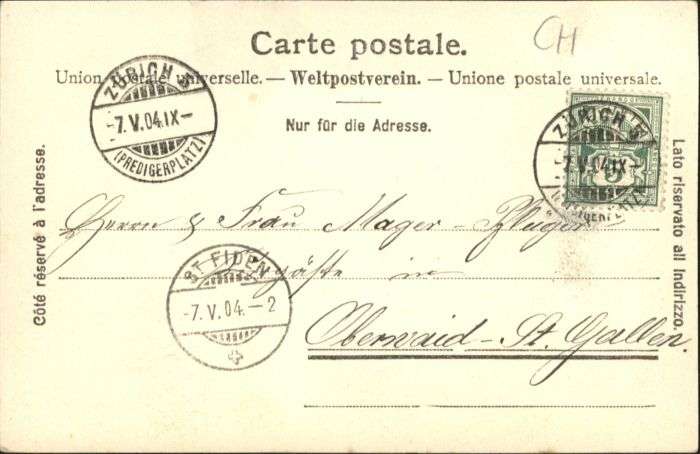 CH
Carte postale.
Union postale universelle. — Weltpostverein. — Unione postale universale.
Nur für die Adresse.
ZÜRICH 5
-7.V.04.IX-
(PREDIGERPLATZ)
ZÜRICH 5
-7.V.04.IX-
Côté réservé à l'adresse.
Lato riservato all indirizzo.
Herrn & Frau Mager-
gäste in
Oberwaid - St. Gallen.
ST FIDEN
-7.V.04.-2